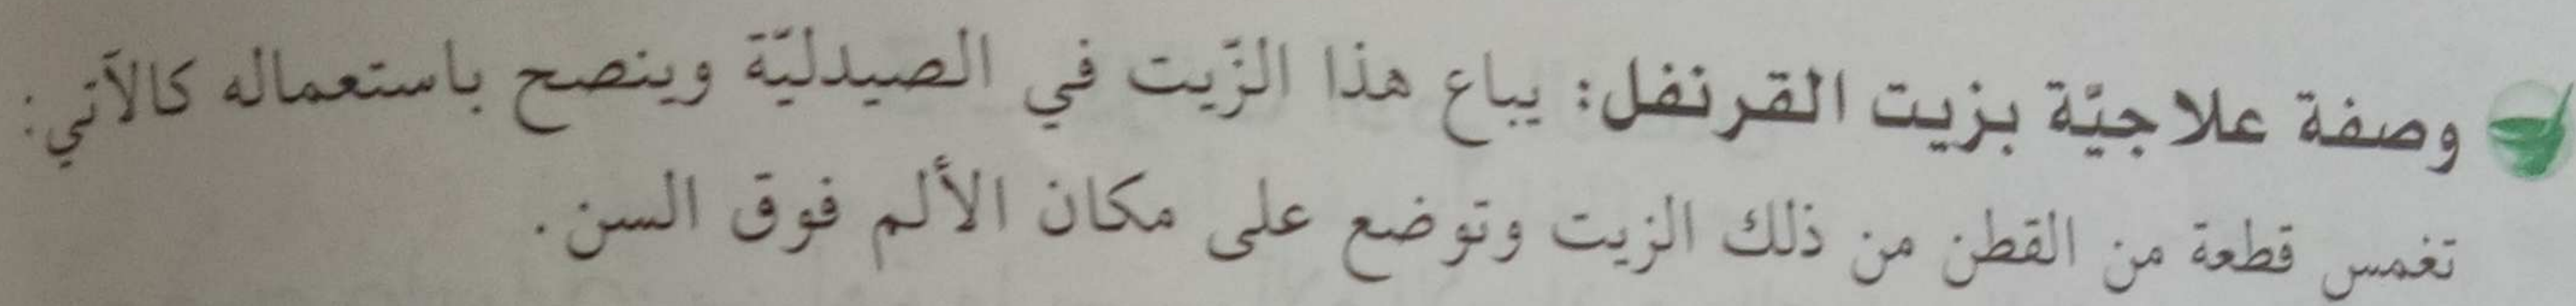 وصفة علاجيّة بزيت القرنفل: يباع هذا الزّيت في الصيدليّة وينصح باستعماله كالآتي:
تغمس قطعة من القطن من ذلك الزيت وتوضع على مكان الألم فوق السن.